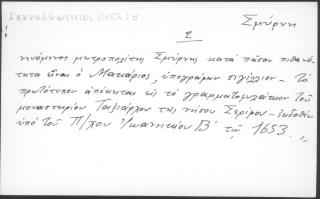 Γενναδώτειος Βιβλιο
Σμύρνη
2
γενόμενοι μητροπολίτης Σμύρνης κατά πάσαν πιθανό-
τητα είναι ο Μακάριος, υπογράφων σιγίλλιον - το
πρωτότυπον απόκειται εις το γραμματοφυλάκιον του
μοναστηρίου Ταξιάρχου της νήσου Σερίφου - εκδοθέν
υπό του Π/χου Ιωαννικίου Β' τω 1653. „